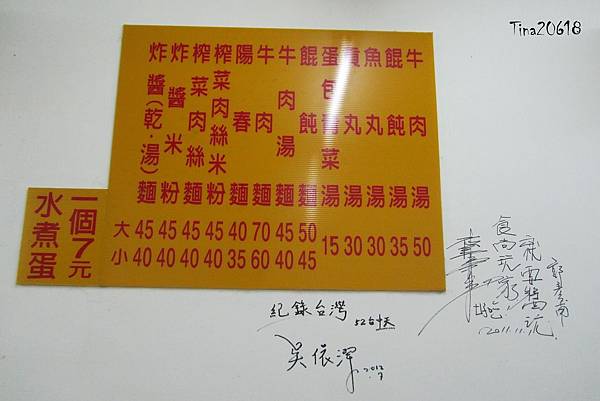 Tina20618
牛肉湯
餛飩湯
魚丸湯
貢丸湯
蛋包青菜湯
餛飩麵
牛肉湯麵
牛肉麵
陽春麵
榨菜肉絲米粉
榨菜肉絲麵
炸醬米粉
炸醬(乾·湯)麵
大 45 45 45 45 40 70 45 50
小 40 40 40 40 35 60 40 45
15 30 30 35 50
一個7元
水煮蛋
食尚玩家
2011.11
紀錄台灣
吳依潔